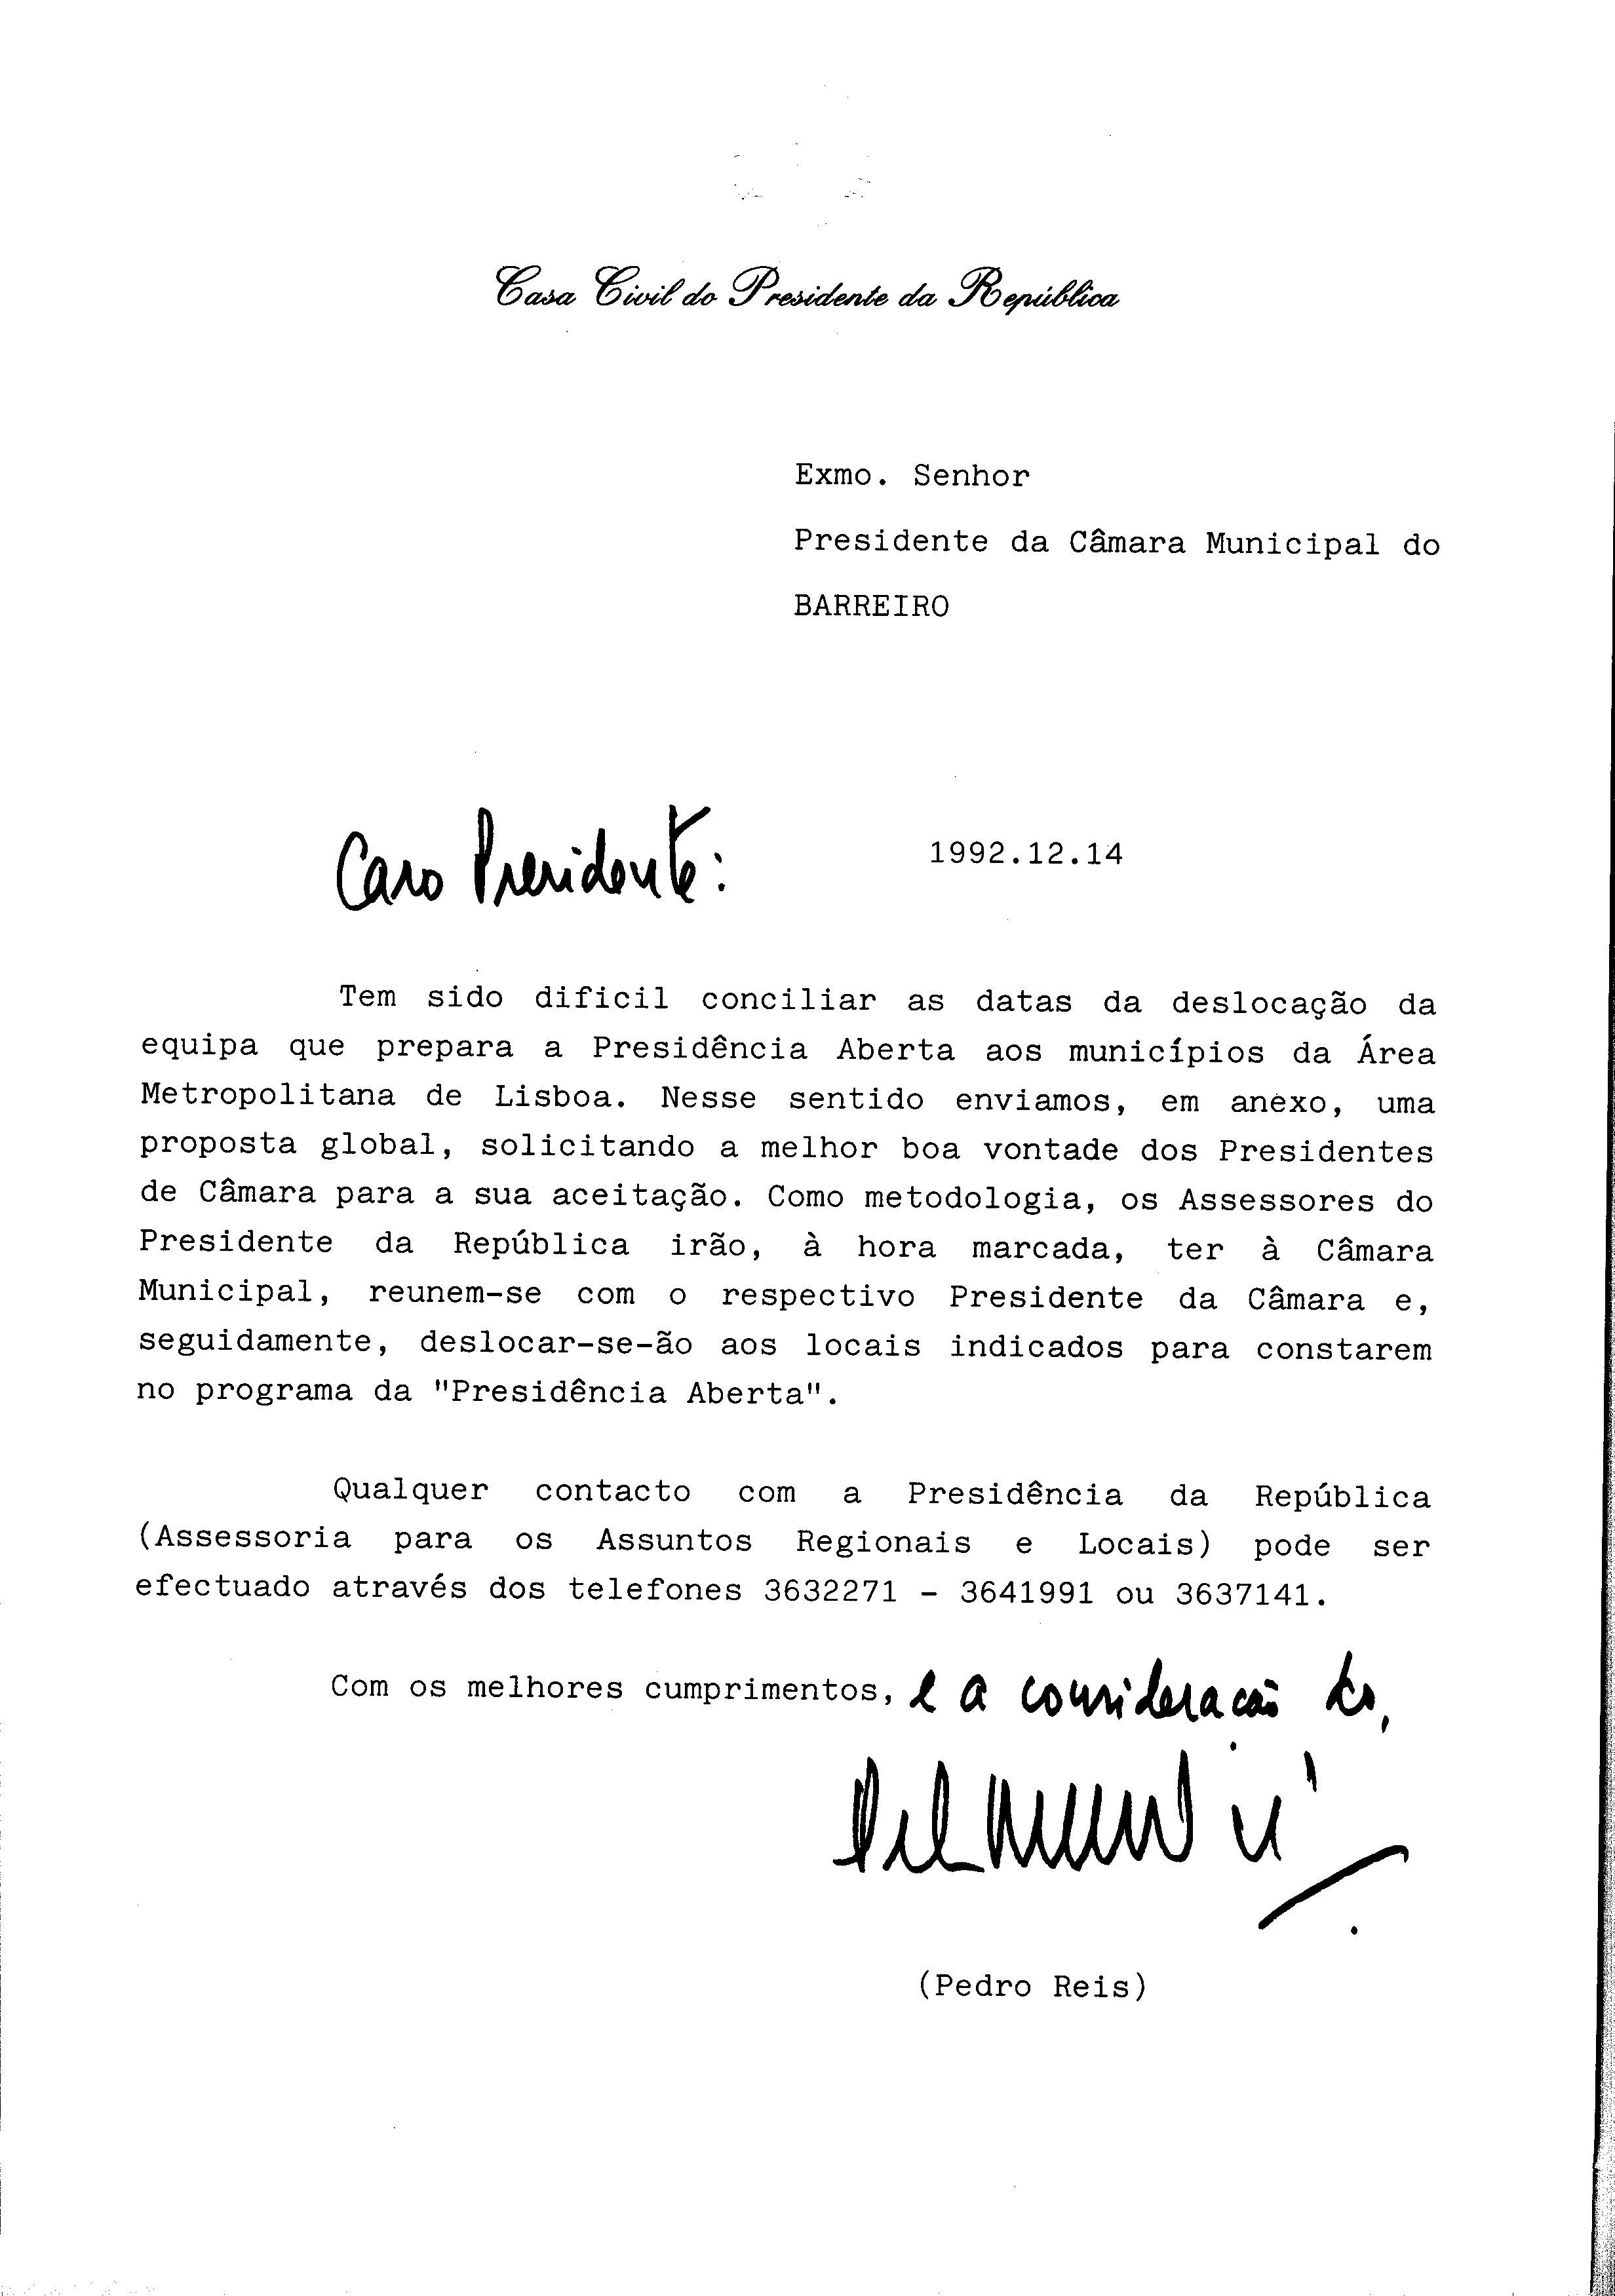 Casa Civil do Presidente da República
Exmo. Senhor
Presidente da Câmara Municipal do
BARREIRO
Caro Presidente:
1992.12.14
Tem sido dificil conciliar as datas da deslocação da
equipa que prepara a Presidência Aberta aos municípios da Área
Metropolitana de Lisboa. Nesse sentido enviamos, em anexo, uma
proposta global, solicitando a melhor boa vontade dos Presidentes
de Câmara para a sua aceitação. Como metodologia, os Assessores do
Presidente da República irão, à hora marcada, ter à Câmara
Municipal, reunem-se com o respectivo Presidente da Câmara e,
seguidamente, deslocar-se-ão aos locais indicados para constarem
no programa da "Presidência Aberta".
Qualquer contacto com a Presidência da República
(Assessoria para os Assuntos Regionais e Locais) pode ser
efectuado através dos telefones 3632271 - 3641991 ou 3637141.
Com os melhores cumprimentos, e a consideração do,
(Pedro Reis)